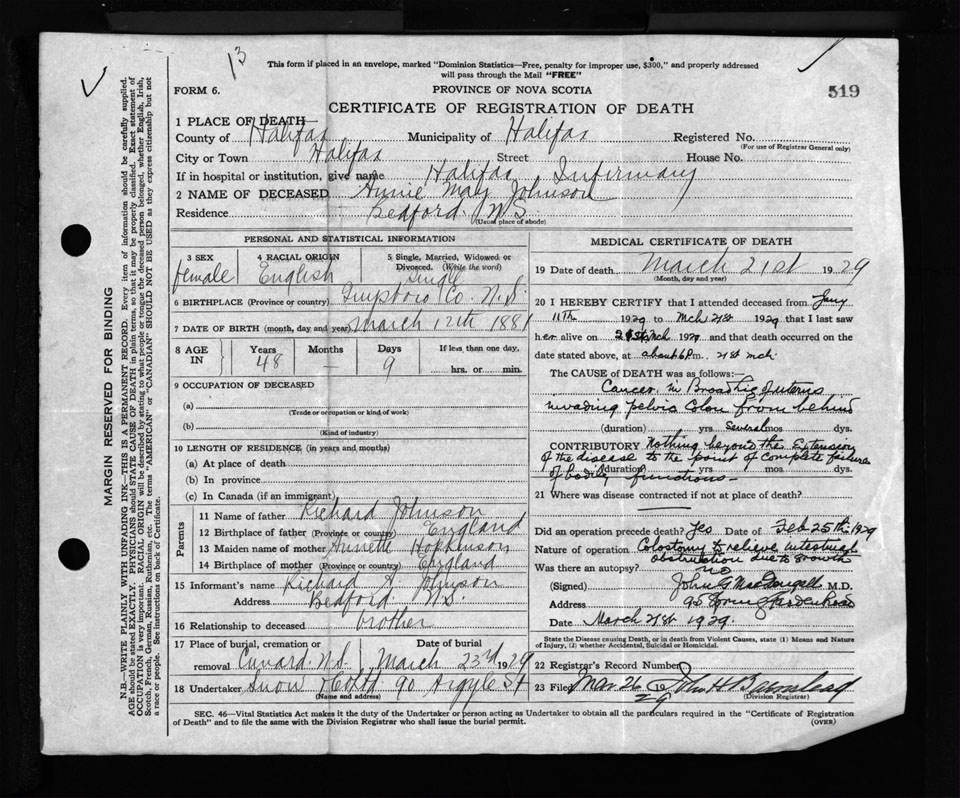 13
This form if placed in an envelope, marked "Dominion Statistics—Free, penalty for improper use, $300," and properly addressed
will pass through the Mail "FREE"
FORM 6.
PROVINCE OF NOVA SCOTIA
519
CERTIFICATE OF REGISTRATION OF DEATH
1 PLACE OF DEATH
County of Halifax Municipality of Halifax Registered No.
(For use of Registrar General only)
City or Town Halifax Street House No.
If in hospital or institution, give name Halifax Infirmary
2 NAME OF DECEASED Annie May Johnson
Residence Bedford. N.S.
(Usual place of abode)
PERSONAL AND STATISTICAL INFORMATION
3 SEX 4 RACIAL ORIGIN 5 Single, Married, Widowed or
Divorced. (Write the word)
female English Single
6 BIRTHPLACE (Province or country) Co. N.S.
7 DATE OF BIRTH (month, day, and year) March 12th 1881
8 AGE IN Years Months Days If less than one day,
48 — 9 hrs. or min.
9 OCCUPATION OF DECEASED
(a)
(Trade or occupation or kind of work)
(b)
(Kind of industry)
10 LENGTH OF RESIDENCE (in years and months)
(a) At place of death
(b) In province
(c) In Canada (if an immigrant)
Parents
11 Name of father Richard Johnson
12 Birthplace of father (Province or country) England
13 Maiden name of mother Annette Hopkinson
14 Birthplace of mother (Province or country) England
15 Informant's name Richard A Johnson
Address Bedford. N.S.
16 Relationship to deceased brother
17 Place of burial, cremation or removal Date of burial
N.S. March 23rd 1929
18 Undertaker Snow & Co Ltd 90 Argyle St
MEDICAL CERTIFICATE OF DEATH
19 Date of death March 21st 1929
(Month, day and year)
20 I HEREBY CERTIFY that I attended deceased from Jany
11th 1929 to Mch 21st 1929 that I last saw
her alive on 21st Mch 1929 and that death occurred on the
date stated above, at about 6 P.m. 21st mch.
The CAUSE of DEATH was as follows:—
Cancer in Broad lig of uterus
invading pelvis Colon from behind
(duration) yrs Several mos dys.
CONTRIBUTORY Nothing beyond the Extension
of the disease to the point of complete failure
(duration) yrs mos dys.
of bodily functions—
21 Where was disease contracted if not at place of death?
Did an operation precede death? Yes Date of Feb 25th 1929
Nature of operation Colostomy to relieve intestinal
obstruction due to growth
Was there an autopsy? no
(Signed) John G MacDougall M.D.
Address 95 Spring Garden Road
Date March 21st 1929.
State the Disease causing Death, or in death from Violent Causes, state (1) Means and Nature
of Injury, (2) whether Accidental, Suicidal or Homicidal.
22 Registrar's Record Number
23 Filed Mar 26 19 29 John H
(Division Registrar)
SEC. 46—Vital Statistics Act makes it the duty of the Undertaker or person acting as Undertaker to obtain all the particulars required in the "Certificate of Registration
of Death" and to file the same with the Division Registrar who shall issue the burial permit.
(OVER)
MARGIN RESERVED FOR BINDING
N.B.—WRITE PLAINLY WITH UNFADING INK—THIS IS A PERMANENT RECORD. Every item of information should be carefully supplied.
AGE should be stated EXACTLY. PHYSICIANS should STATE CAUSE OF DEATH in plain terms, so that it may be properly classified. Exact statement of
OCCUPATION is very important. RACIAL ORIGIN will be described by stating to what people or tongue the deceased person belonged, whether English, Irish,
Scotch, French, German, Russian, Ruthenian, etc. The terms "AMERICAN" or "CANADIAN" SHOULD NOT BE USED as they express citizenship but not
a race or people. See instructions on back of Certificate.